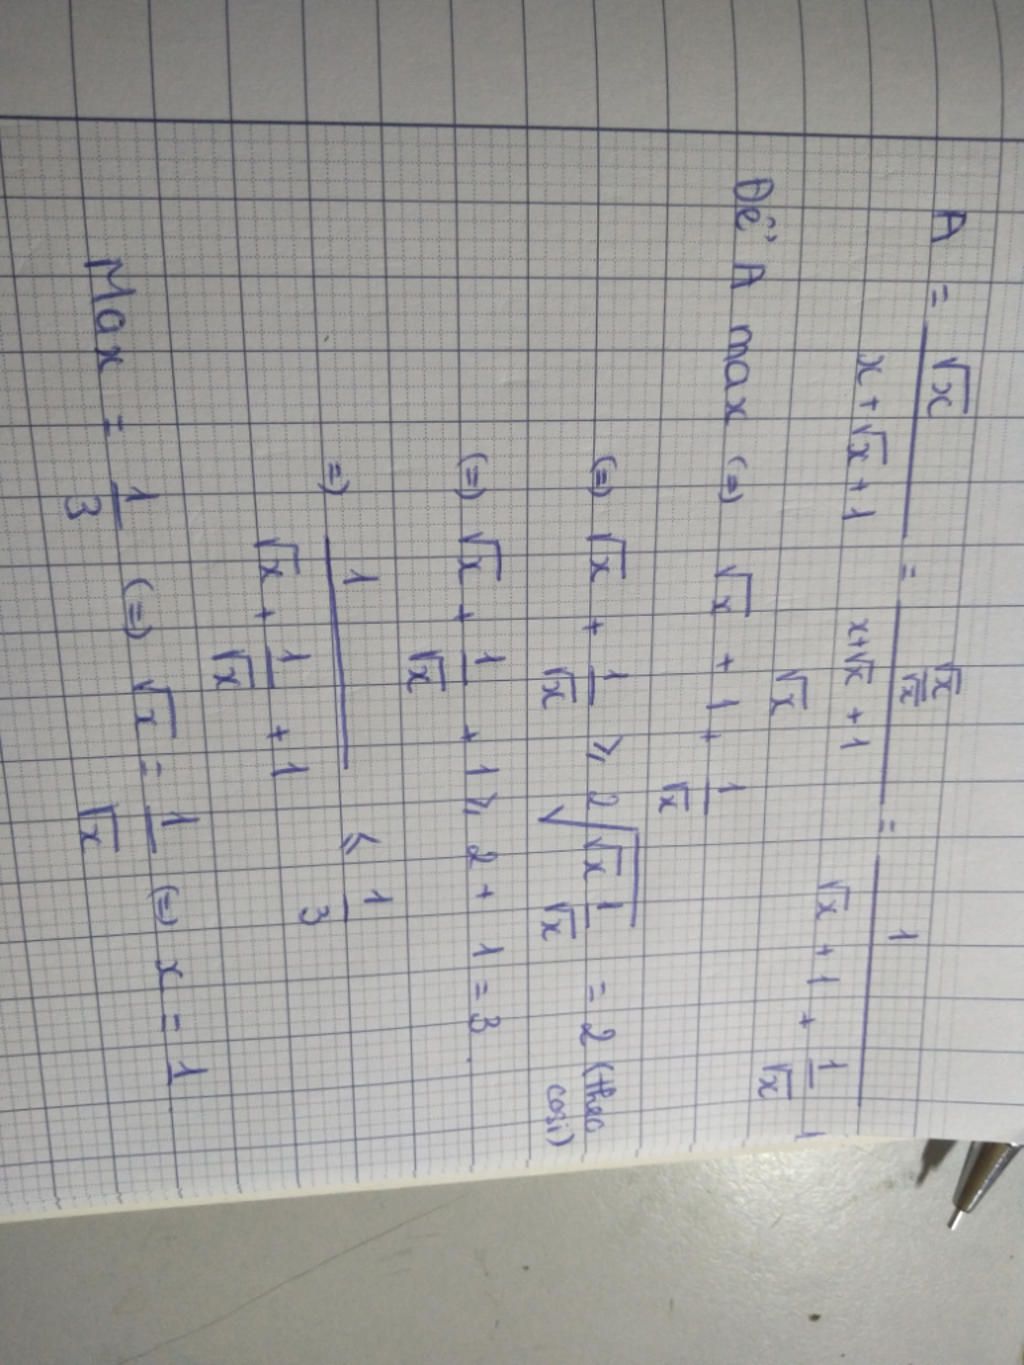 A = √x / (x + √x + 1) = (√x / √x) / ((x + √x + 1) / √x) = 1 / (√x + 1 + 1/√x)
Để A max (=) √x + 1 + 1/√x
(=) √x + 1/√x ⩾ 2√(√x 1/√x) = 2 (theo cosi)
(=) √x + 1/√x + 1 ⩾ 2 + 1 = 3.
=) 1 / (√x + 1/√x + 1) ⩽ 1/3
Max = 1/3 (=) √x = 1/√x (=) x = 1